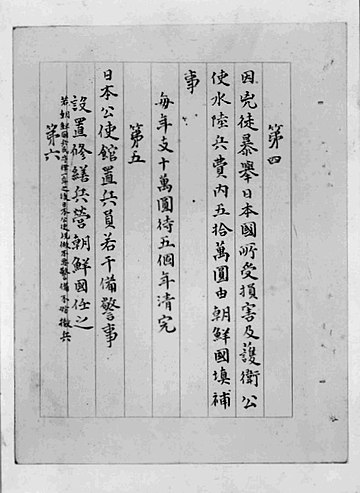 第四
因兇徒暴舉日本國所受損害及護衛公
使水陸兵費內五拾萬圓由朝鮮國填補
事
每年支十萬圓待五個年清完
第五
日本公使館置兵員若干備警事
設置修繕兵營朝鮮國任之
若朝鮮國兵民守律一年之後日本公使視做不要警備不妨撤兵
第六